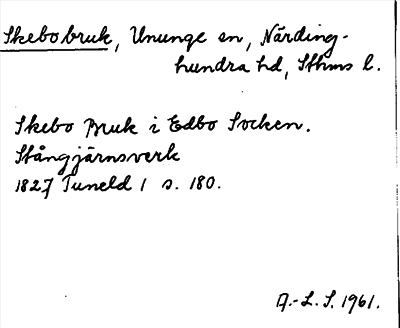 Skebobruk, Ununge sn, Närding-
hundra hd, Sthms l.
Skebo Bruk i Edbo Socken.
Stångjärnsverk
1827 Tuneld 1 s. 180.
A.-L. S. 1961.